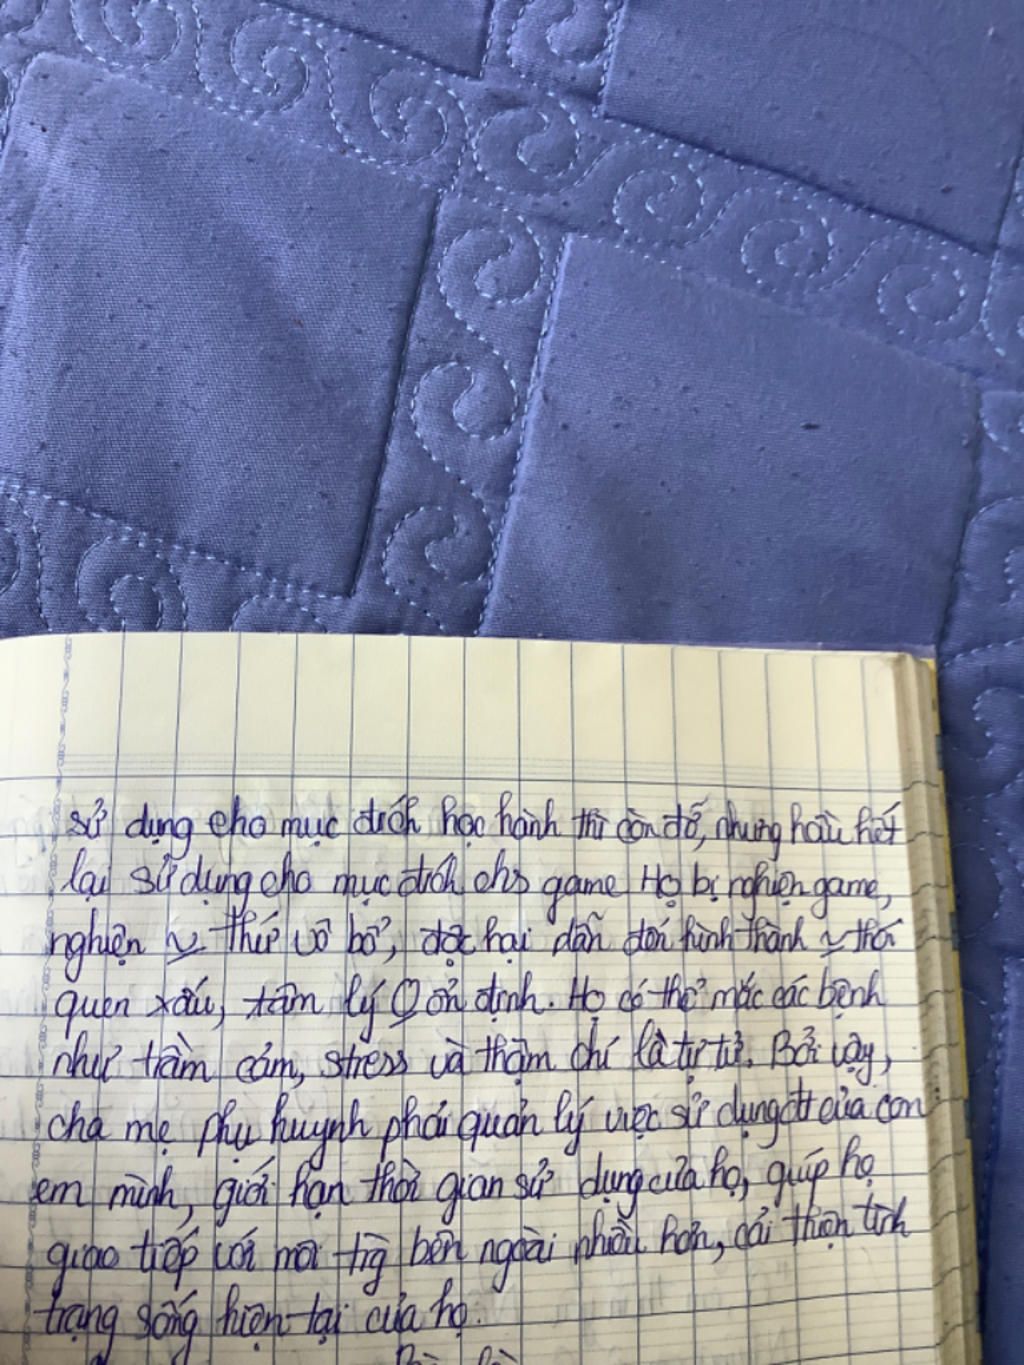 sử dụng cho mục đích học hành thì còn đỡ, nhưng hầu hết
lại sử dụng cho mục đích chs game. Họ bị nghiện game,
nghiện ~ thứ vô bổ, độc hại dẫn đến hình thành ~ thói
quen xấu, tâm lý ổn định. Họ có thể mắc các bệnh
như trầm cảm, stress và thậm chí là tự tử. Bởi vậy,
cha mẹ phụ huynh phải quản lý việc sử dụng đt của con
em mình, giới hạn thời gian sử dụng của họ, giúp họ
giao tiếp với môi trg bên ngoài nhiều hơn, cải thiện tình
trạng sống hiện tại của họ.